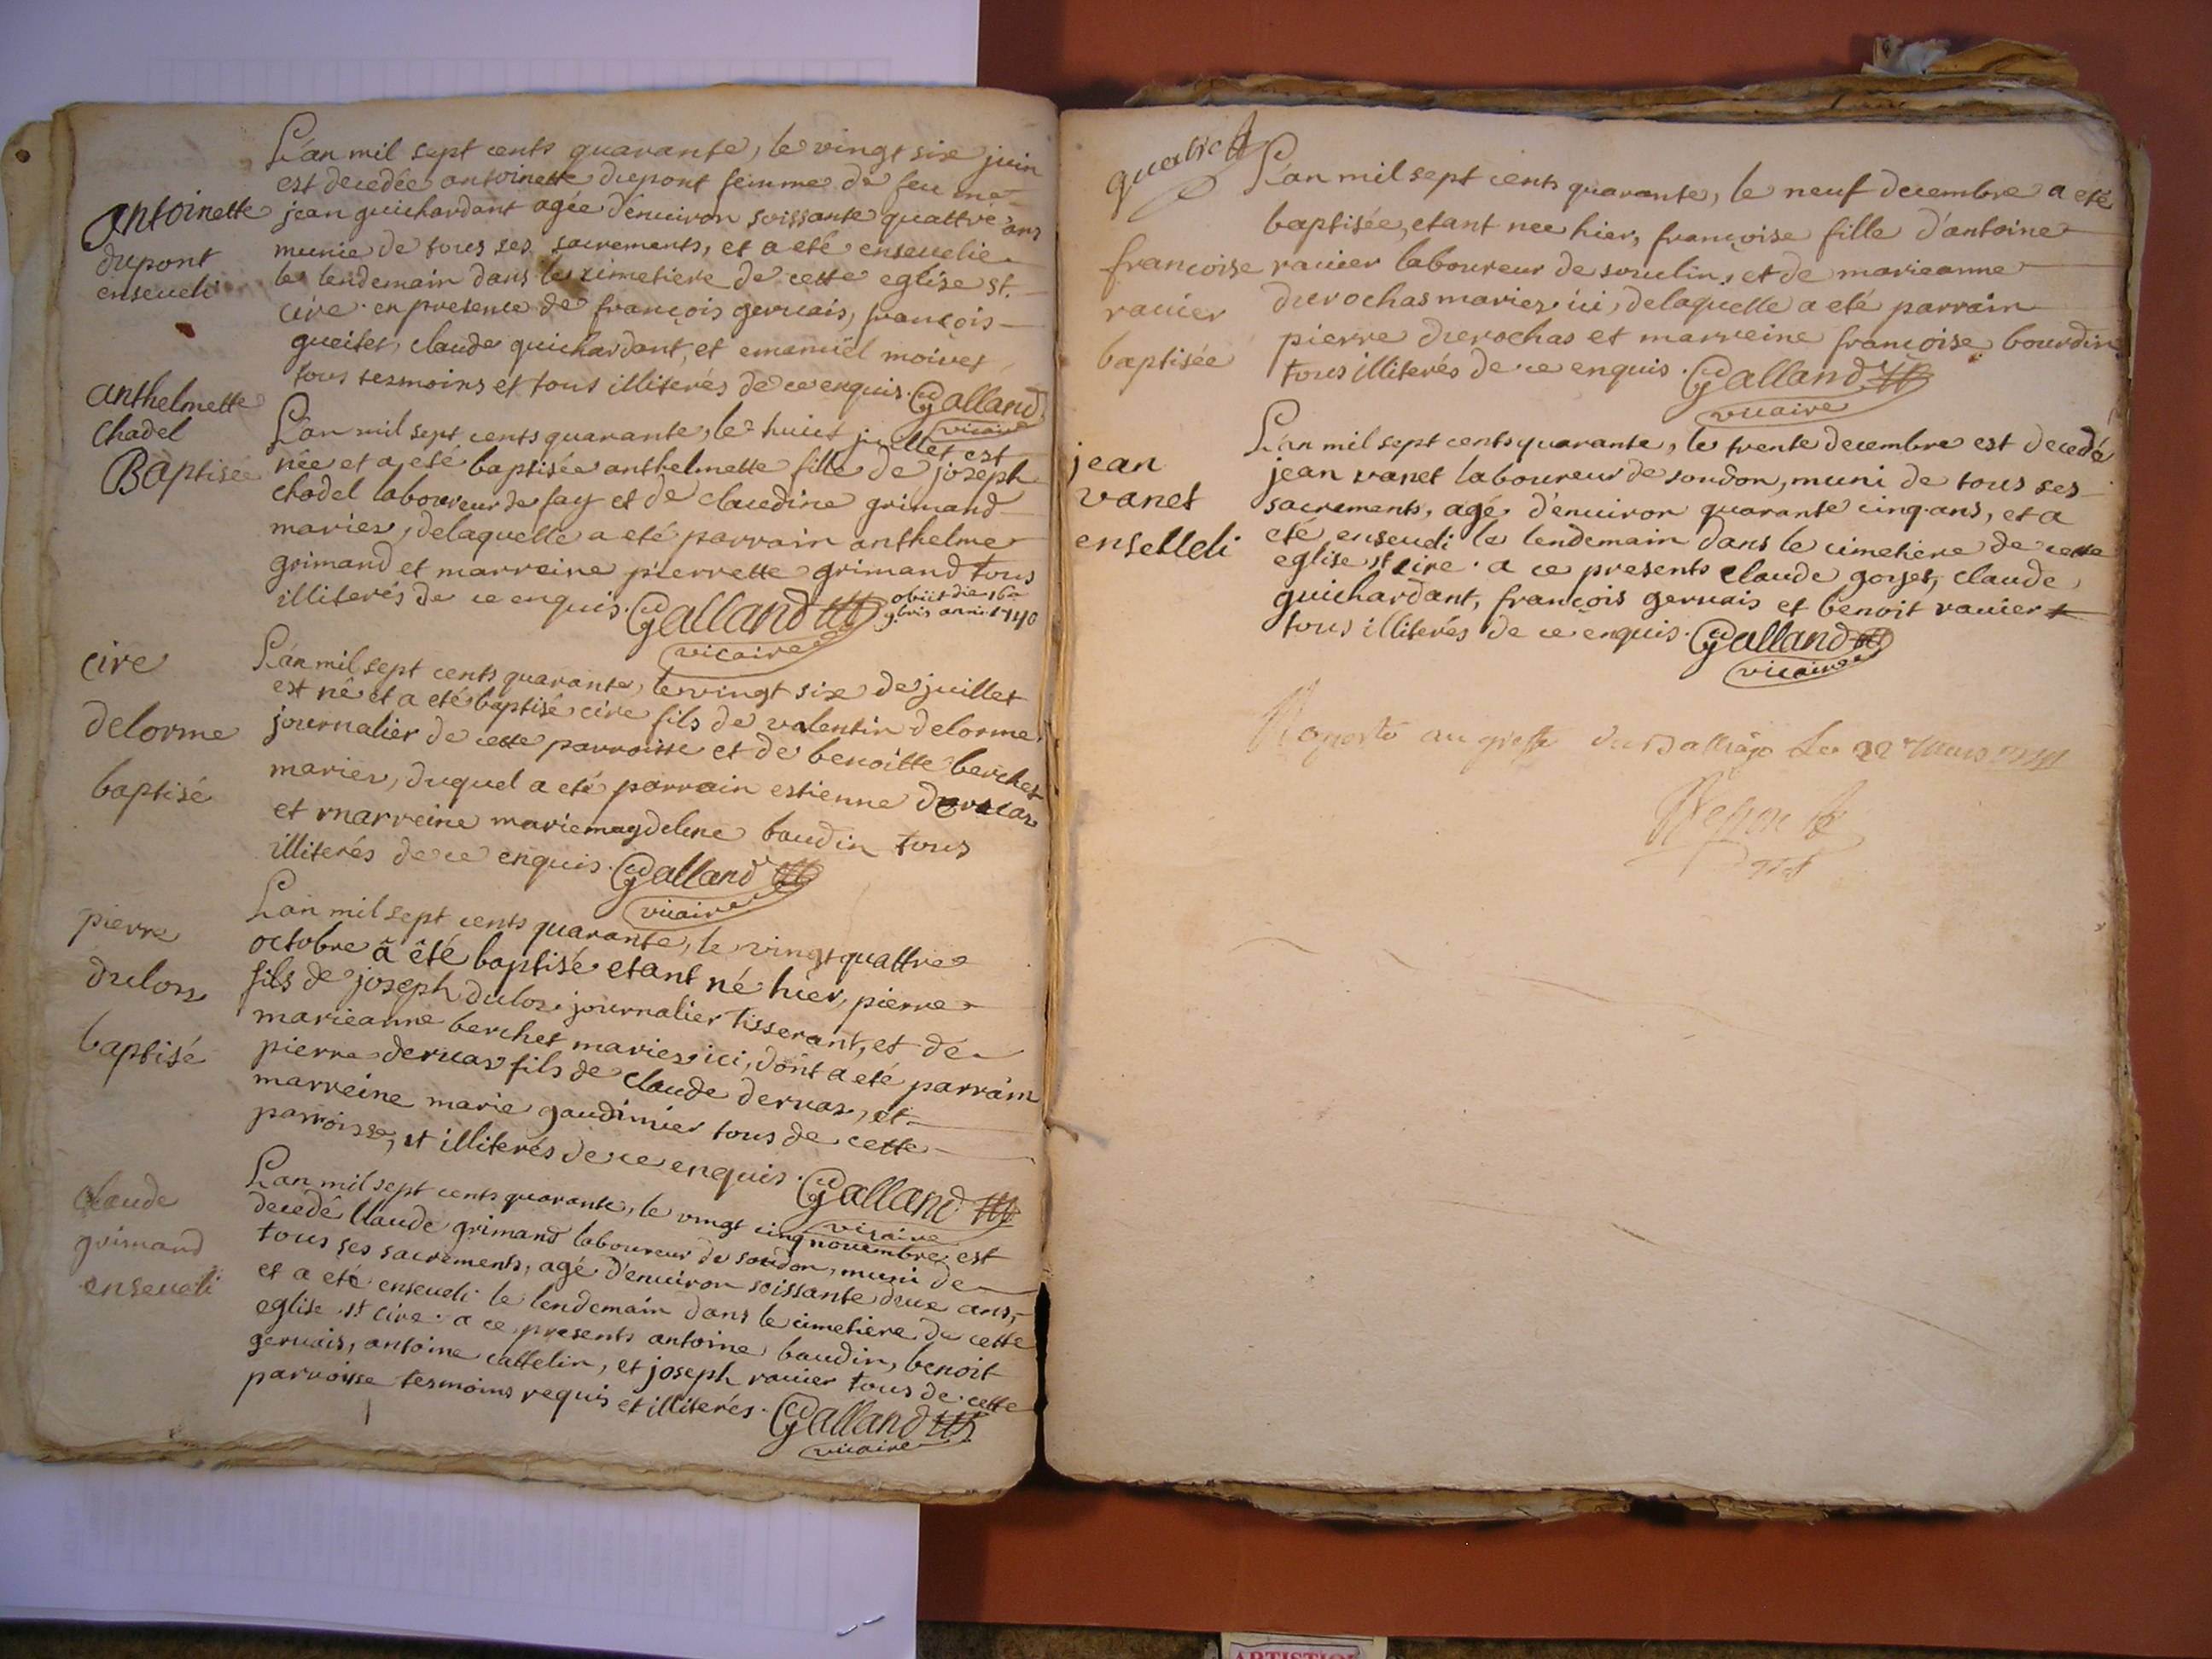 L'an mil sept cents quarante, le vingt six juin
est decedée antoinette dupont femme de feu me
antoinette
dupont
enseveli
jean guichardant agée d'environ soissante quattre ans
munie de tous ses sacrements, et a eté ensevelie
le lendemain dans le cimetiere de cette eglise st.
cire. en presence de françois gervais, françois
gueiter, claude guichardant, et emanüel moivet
tous tesmoins et tous illiterés de ce enquis. Galland
vicaire
anthelmette
Chadel
Baptisée
L'an mil sept cents quarante, le huict juillet est
née et a eté baptisée anthelmette fille de joseph
chadel laboureur de fay et de claudine grimand
mariez, de laquelle a eté parrain anthelme
grimand et marreine pierrette grimand tous
illiterés de ce enquis. Galland
vicaire
obiit die 16a
9bris anni 1740
cire
delorme
baptisé
L'an mil sept cents quarante, le vingt six de juillet
est né et a eté baptisé cire fils de valentin delorme
journalier de cette parroisse et de benoitte berchet
mariez, duquel a eté parrain estienne
et marreine mariemagdelene baudin tous
illiterés de ce enquis. Galland
vicaire
pierre
duloz
baptisé
L'an mil sept cents quarante, le vingt quattre
octobre a été baptisé etant né hier, pierre
fils de joseph duloz journalier tisserant, et de
marieanne berchet mariez ici, dont a eté parrain
pierre dervaz fils de claude dervaz, et
marreine marie gaudinier tous de cette
parroisse, et illiterés de ce enquis. Galland
vicaire
claude
grimand
enseveli
L'an mil sept cents quarante, le vingt cinq novembre est
decedé Claude grimand laboureur de soudon, muni de
tous ses sacrements, agé d'environ soissante deux ans,
et a eté enseveli le lendemain dans le cimetiere de cette
eglise st cire. a ce presents antoine baudin, benoit
gervais, antoine cattelin, et joseph ravier tous de cette
parroisse tesmoins requis et illiterés. Galland
vicaire
quatre
françoise
ravier
baptisée
L'an mil sept cents quarante, le neuf decembre a eté
baptisée, etant nee hier, françoise fille d'antoine
ravier laboureur de soulin, et de marieanne
durochas mariez ici, delaquelle a eté parrain
pierre durochas et marreine françoise bourdin
tous illiterés de ce enquis. Galland
vicaire
jean
vanet
enselleli
L'an mil sept cents quarante, le trente decembre est decedé
jean vanet laboureur de soudon, muni de tous ses
sacrements, agé d'environ quarante cinq ans, et a
eté enseveli le lendemain dans le cimetiere de cette
eglise st cire. a ce presents claude gojet, claude
guichardant, françois gervais et benoit ravier
tous illiterés de ce enquis. Galland
vicaire
au greffe du Balliage le 22 mars
ARTISTIQUE